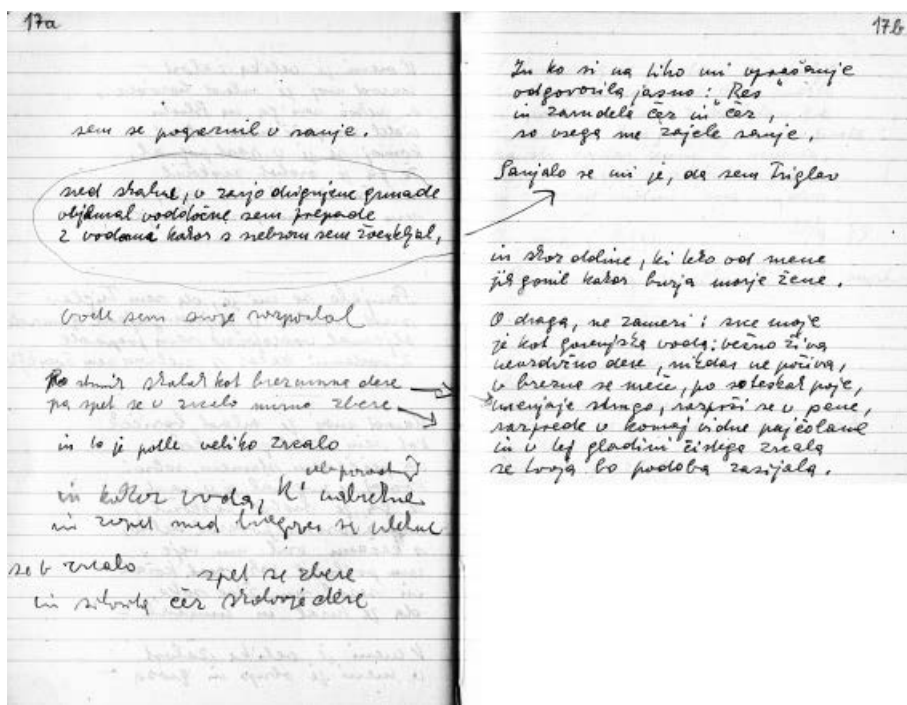 17a
sem se pogreznil v sanje.
sred skalne, v zarjo dvignjene grmade
objemal vodotočne sem prepade
z vodama kakor s srebrom sem žvenkljal,
vode sem svoje razpošlal
Po strmih skalah kot brezumna dere
pa spet se v zrcalo mirno zbere
in to je potle veliko zrcalo
in kakor voda, k'
in zopet med bregove se
se v zrcalo spet se zbere
in silovita čez skalovje dere
17b
In ko si na tiho mi vprašanje
odgovorila jasno: "Res"
in zarudela čez in čez,
so vsega me zajele sanje.
Sanjalo se mi je, da sem Triglav
in skoz doline, ki leže od mene
jih gonil kakor burja morje žene.
O draga, ne zameri: srce moje
je kot gorenjska voda: večno živa
neurdržno dere, nikdar ne počiva,
v brezna se meče, po soteskah poje,
menjaje strugo, razprši se v pene,
razprede v komaj vidne pajčolane
in v tej gladini čistega zrcala
se tvoja bo podoba zasijala.